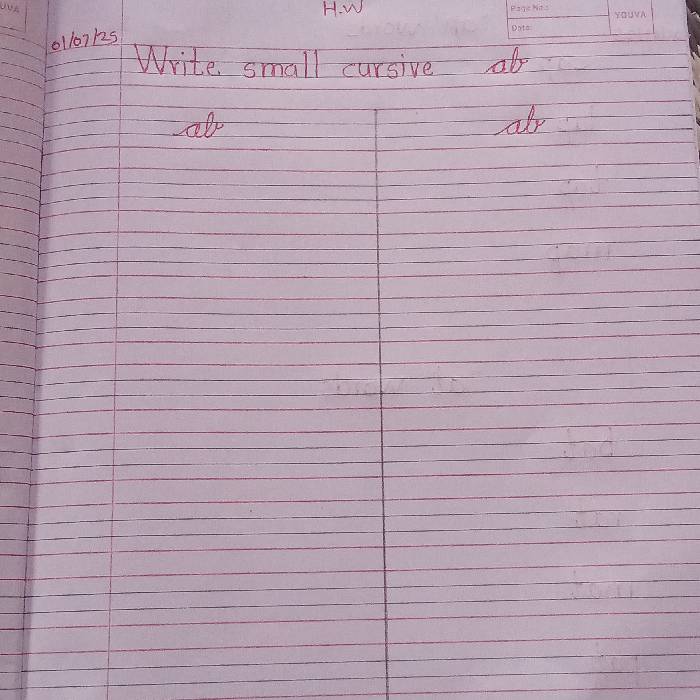 H.W
Page No.:
Date:
YOUVA
01/07/25
Write. small cursive ab
ab ab